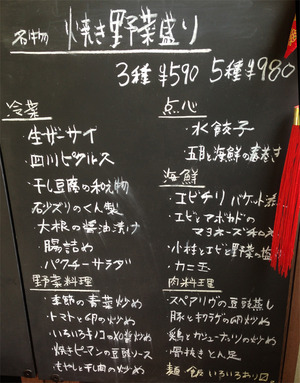 名物 焼き野菜盛り
3種 ¥590 5種 ¥980
冷菜
・生ザーサイ
・四川ピクルス
・干し豆腐の和え物
・砂ズリのくん製
・大根の醤油漬け
・腸詰め
・パクチーサラダ
野菜料理
・季節の青菜炒め
・トマトと卵の炒め
・いろいろキノコのXO醤炒め
・焼きピーマンの豆鼓ソース
・もやしと干し肉の炒め
点心
・水餃子
・五目と海鮮の春巻き
海鮮
・エビチリ バケット添
・エビとアボカドの
マヨネーズチリソース
・小柱とエビと野菜の塩
・カニ玉
肉料理
・スペアリヴの豆鼓蒸し
・豚とキクラゲの卵炒め
・鶏とカシューナッツの炒め
・骨抜きとん足
麺・飯 いろいろあり